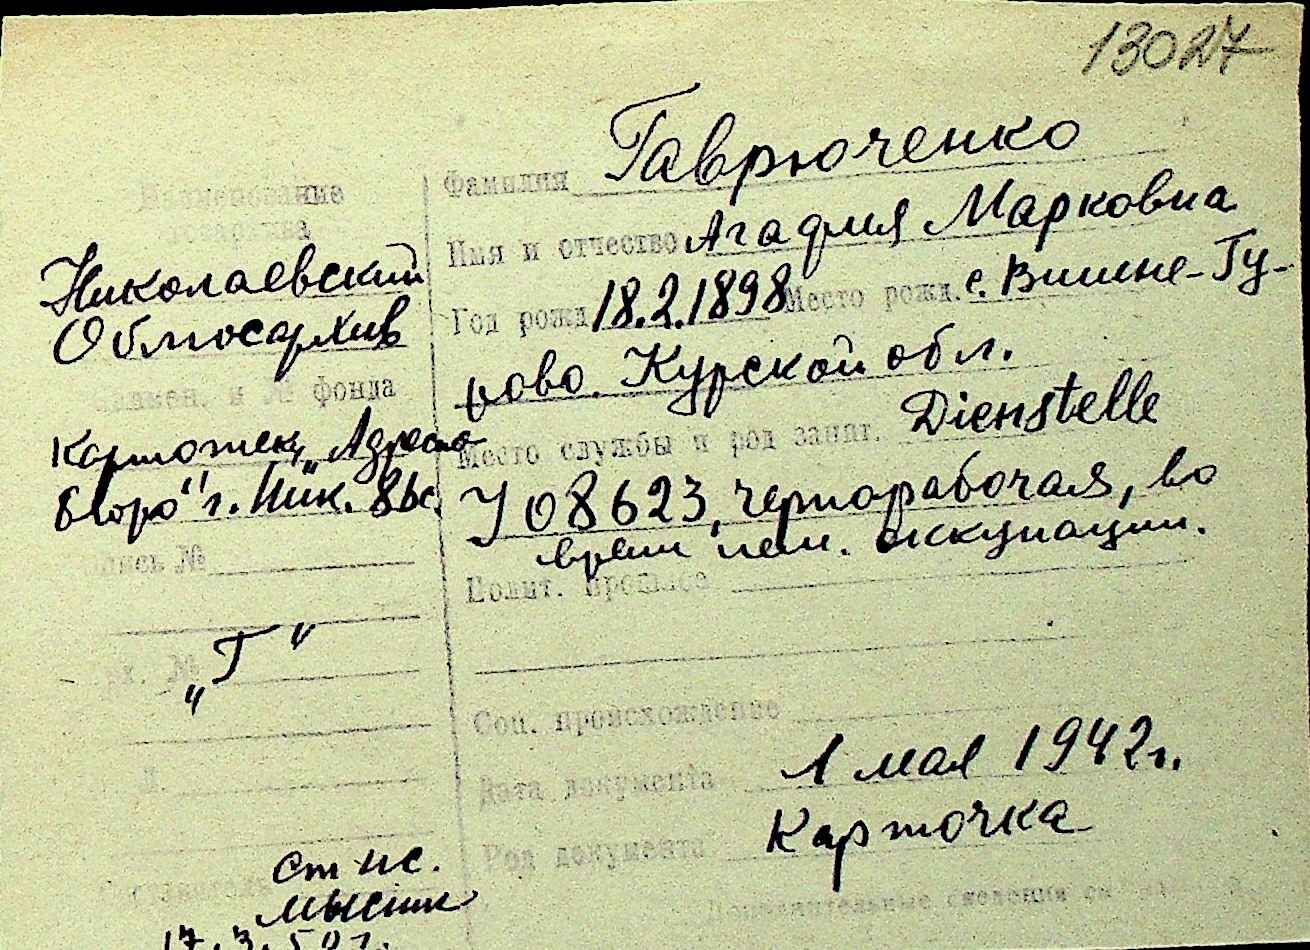 13027
Наименование
госархива
Николаевский
Облгосархив
наимен. и № фонда
Картотек. „Адресно
бюро" г. Ник.
опись №
„Г"
Фамилия Гаврюченко
Имя и отчество Агафия Марковна
Год рожд 18.2.1898 Место рожд. с. Вишне-Гу-
рово. Курской обл.
Место службы и род занят. Dienstelle
У 08623, чернорабочая, во
время нем. оккупации.
Полит. прошлое
Соц. происхождение
Дата документа 1 мая 1942 г.
Род документа Карточка
Дополнительные сведения
ст нс.
17.3.50 г.